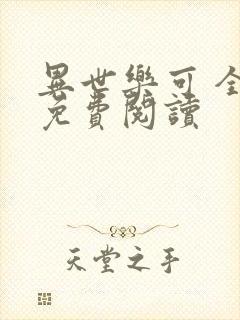 異世樂可全
免費閱讀
天堂之手